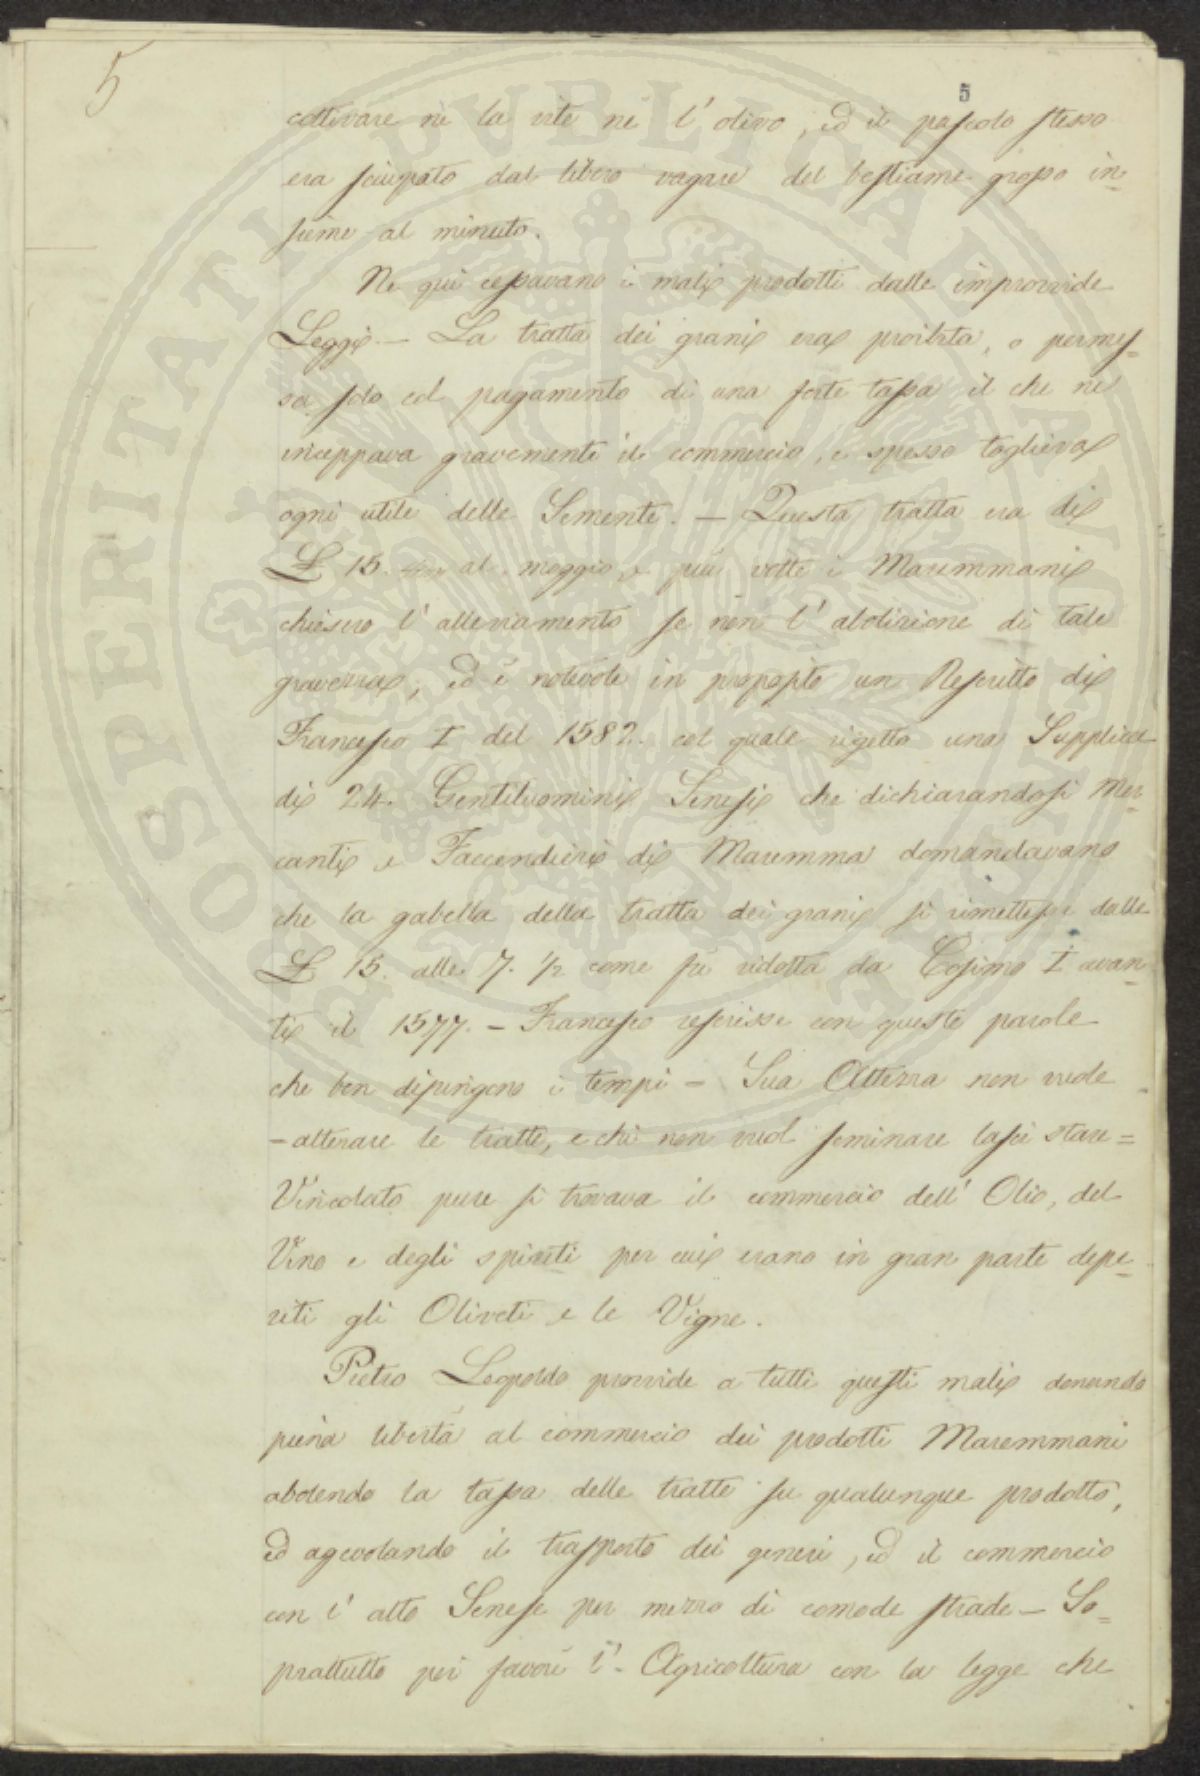 5
5
coltivare nè la vite nè l' olivo, ed il pascolo stesso
era sciupato dal libero vagare del bestiame grosso in=
sieme al minuto.
Ne qui cessavano i mali prodotti dalle improvvide
Leggi. — La tratta dei grani era proibita, o permes=
sa solo col pagamento di una forte tassa il che ne
inceppava gravemente il commercio, e spesso toglieva
ogni utile delle Semente. — Questa tratta era di
£ 15. al moggio, e più volte i Maremmani
chiesero l' alleviamento se non l' abolizione di tale
gravezza, ed è notevole in proposito un Rescritto di
Francesco I del 1582. col quale rigettò una Supplica
di 24. Gentiluomini Senesi che dichiarandosi Mer=
canti e Faccendieri di Maremma domandavano
che la gabella della tratta dei grani si rimettesse dalle
£ 15. alle 7. 1/2 come fu ridotta da Cosimo I avan=
ti il 1577. — Francesco rescrisse con queste parole
che ben dipingono i tempi — Sua Altezza non vuole
— alterare le tratte, e chi non vuol seminare lasci stare =
Vincolato pure si trovava il commercio dell' Olio, del
Vino e degli spiriti per cui erano in gran parte depe=
riti gli Oliveti e le Vigne.
Pietro Leopoldo provvide a tutti questi mali donando
piena libertà al commercio dei prodotti Maremmani
abolendo la tassa delle tratte su qualunque prodotto,
ed agevolando il trasporto dei generi, ed il commercio
con l' alto Senese per mezzo di comode strade — So=
prattutto poi favorì l' Agricoltura con la legge che
PROSPERITATI PVBLICAE